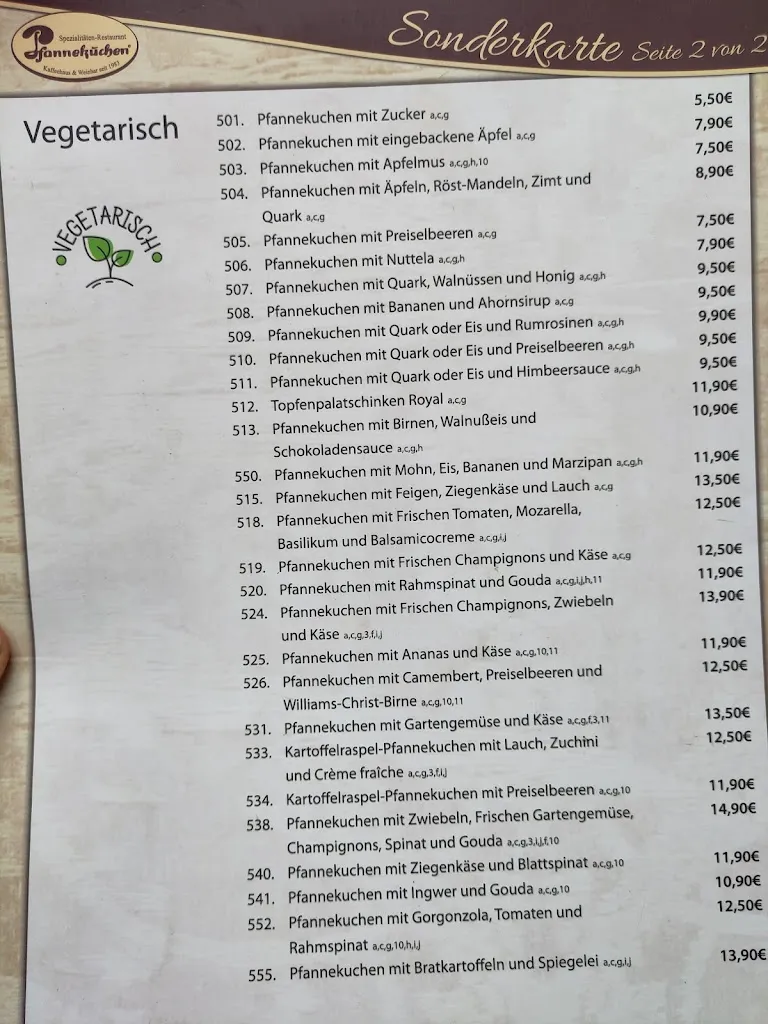 Spezialitäten-Restaurant
Pfannekuchen
Kaffeehaus & Weinbar seit 1983
Sonderkarte Seite 2 von 2
Vegetarisch
VEGETARISCH
501. Pfannekuchen mit Zucker a,c,g 5,50€
502. Pfannekuchen mit eingebackene Äpfel a,c,g 7,90€
503. Pfannekuchen mit Apfelmus a,c,g,h,10 7,50€
504. Pfannekuchen mit Äpfeln, Röst-Mandeln, Zimt und 8,90€
Quark a,c,g
505. Pfannekuchen mit Preiselbeeren a,c,g 7,50€
506. Pfannekuchen mit Nuttela a,c,g,h 7,90€
507. Pfannekuchen mit Quark, Walnüssen und Honig a,c,g,h 9,50€
508. Pfannekuchen mit Bananen und Ahornsirup a,c,g 9,50€
509. Pfannekuchen mit Quark oder Eis und Rumrosinen a,c,g,h 9,90€
510. Pfannekuchen mit Quark oder Eis und Preiselbeeren a,c,g,h 9,50€
511. Pfannekuchen mit Quark oder Eis und Himbeersauce a,c,g,h 9,50€
512. Topfenpalatschinken Royal a,c,g 11,90€
513. Pfannekuchen mit Birnen, Walnußeis und 10,90€
Schokoladensauce a,c,g,h
550. Pfannekuchen mit Mohn, Eis, Bananen und Marzipan a,c,g,h 11,90€
515. Pfannekuchen mit Feigen, Ziegenkäse und Lauch a,c,g 13,50€
518. Pfannekuchen mit Frischen Tomaten, Mozarella, 12,50€
Basilikum und Balsamicocreme a,c,g,i,j
519. Pfannekuchen mit Frischen Champignons und Käse a,c,g 12,50€
520. Pfannekuchen mit Rahmspinat und Gouda a,c,g,i,j,h,11 11,90€
524. Pfannekuchen mit Frischen Champignons, Zwiebeln 13,90€
und Käse a,c,g,3,f,i,j
525. Pfannekuchen mit Ananas und Käse a,c,g,10,11 11,90€
526. Pfannekuchen mit Camembert, Preiselbeeren und 12,50€
Williams-Christ-Birne a,c,g,10,11
531. Pfannekuchen mit Gartengemüse und Käse a,c,g,f,3,11 13,50€
533. Kartoffelraspel-Pfannekuchen mit Lauch, Zuchini 12,50€
und Crème fraîche a,c,g,3,f,i,j
534. Kartoffelraspel-Pfannekuchen mit Preiselbeeren a,c,g,10 11,90€
538. Pfannekuchen mit Zwiebeln, Frischen Gartengemüse, 14,90€
Champignons, Spinat und Gouda a,c,g,3,i,j,f,10
540. Pfannekuchen mit Ziegenkäse und Blattspinat a,c,g,10 11,90€
541. Pfannekuchen mit Ingwer und Gouda a,c,g,10 10,90€
552. Pfannekuchen mit Gorgonzola, Tomaten und 12,50€
Rahmspinat a,c,g,10,h,i,j
555. Pfannekuchen mit Bratkartoffeln und Spiegelei a,c,g,i,j 13,90€